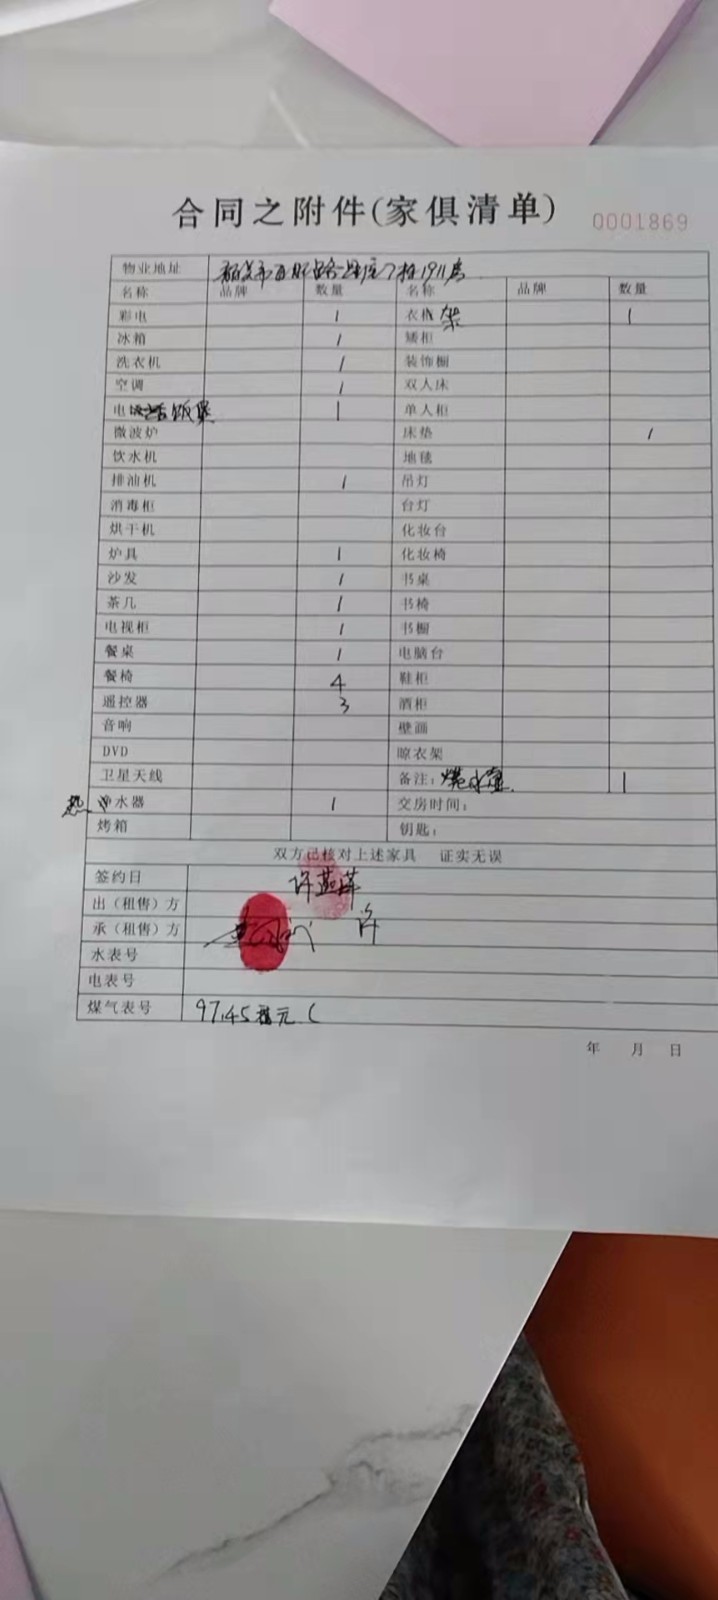 合同之附件(家俱清单)
0001869
物业地址 7栋1911房
名称 品牌 数量 名称 品牌 数量
彩电 1 衣架 1
冰箱 1 矮柜
洗衣机 1 装饰橱
空调 1 双人床
电饭煲 1 单人柜
微波炉 床垫 1
饮水机 地毯
排油机 1 吊灯
消毒柜 台灯
烘干机 化妆台
炉具 1 化妆椅
沙发 1 书桌
茶几 1 书椅
电视柜 1 书橱
餐桌 1 电脑台
餐椅 4 鞋柜
遥控器 3 酒柜
音响 壁画
DVD 晾衣架
卫星天线 备注:烧水壶 1
热水器 1 交房时间:
烤箱 钥匙:
双方已核对上述家具 证实无误
签约日
出(租售)方
承(租售)方 许
水表号
电表号
煤气表号 97.45 元(
年 月 日